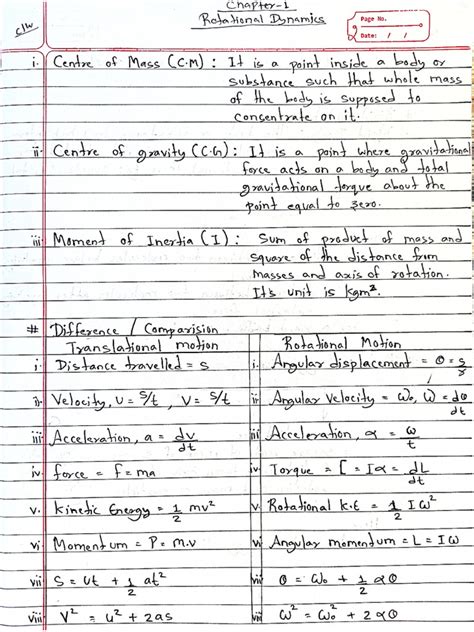 Chapter-1
Rotational Dynamics
Page No.
Date: / /
c/w
i. Centre of Mass (C.M) : It is a point inside a body or
substance such that whole mass
of the body is supposed to
concentrate on it.
ii. Centre of gravity (C.G) : It is a point where gravitational
force acts on a body and total
gravitational torque about the
point equal to zero.
iii. Moment of Inertia (I) : Sum of product of mass and
square of the distance from
masses and axis of rotation.
It's unit is kgm².
# Difference / Comparision
Translational motion
Rotational Motion
i. Distance travelled = s
i. Angular displacement = θ = s/r
ii. Velocity, u = s/t , v = s/t
ii. Angular Velocity = ω₀, ω = dθ/dt
iii. Acceleration, a = dv/dt
iii Acceleration, α = ω/t
iv. force = f = ma
iv. Torque = τ = Iα = dL/dt
v. Kinetic Energy = 1/2 mv²
v. Rotational k.E = 1/2 Iω²
vi. Momentum = P = m.v
vi Angular momentum = L = Iω
vii S = ut + 1/2 at²
vii θ = ω₀ + 1/2 αθ
viii v² = u² + 2as
viii ω² = ω₀² + 2αθ